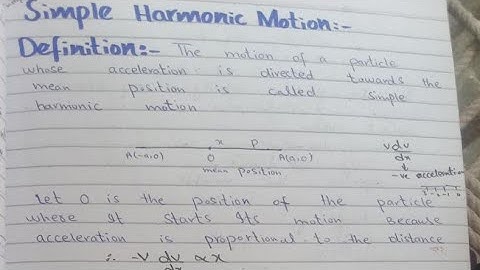 Simple Harmonic Motion:-
Definition:- The motion of a particle
whose acceleration is directed towards the
mean position is called Simple
harmonic motion
x P
A(-a,0) O A(a,0)
mean position
vdv
dx
-ve acceleration
Let O is the position of the particle
where It starts Its motion Because
acceleration is proportional to the distance
∴ -V dv ∝ x
dx